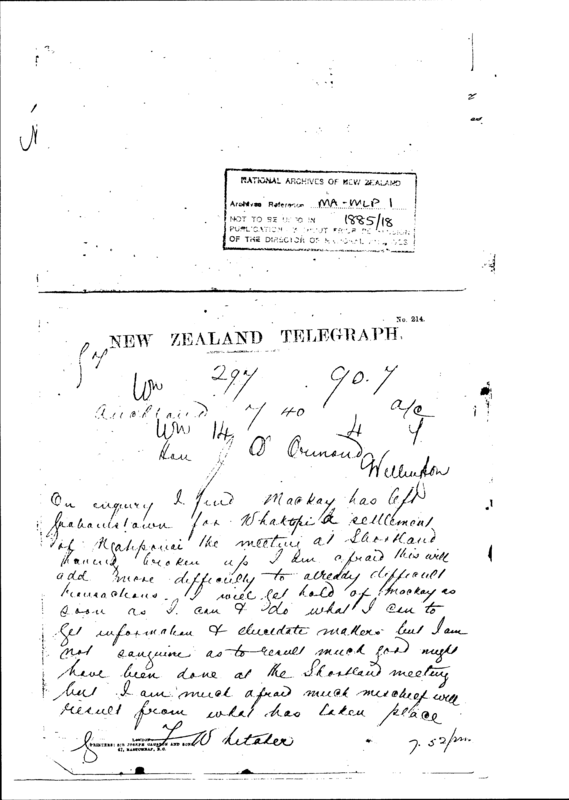 NATIONAL ARCHIVES OF NEW ZEALAND
Archives Reference MA-MLP 1
1885/18
NOT TO BE USED IN
OF THE DIRECTOR OF
No. 214.
NEW ZEALAND TELEGRAPH.
Wn 297 90.7
Auckland 7 40 a/c
Wn 14 4
Hon D Ormond
Wellington
On enquiry I find Mackay has left
Grahamstown for a settlement
of the meeting at Shortland
having broken up I am afraid this will
add more difficulty to already difficult
transactions. I will get hold of Mackay as
soon as I can & do what I can to
get information & elucidate matters but I am
not sanguine as to result much good might
have been done at the Shortland meeting
but I am much afraid much mischief will
result from what has taken place
F Whitaker
7.52/pm.
London
PRINTERS: SIR JOSEPH CAUSTON AND SONS
47, EASTCHEAP, E.C.